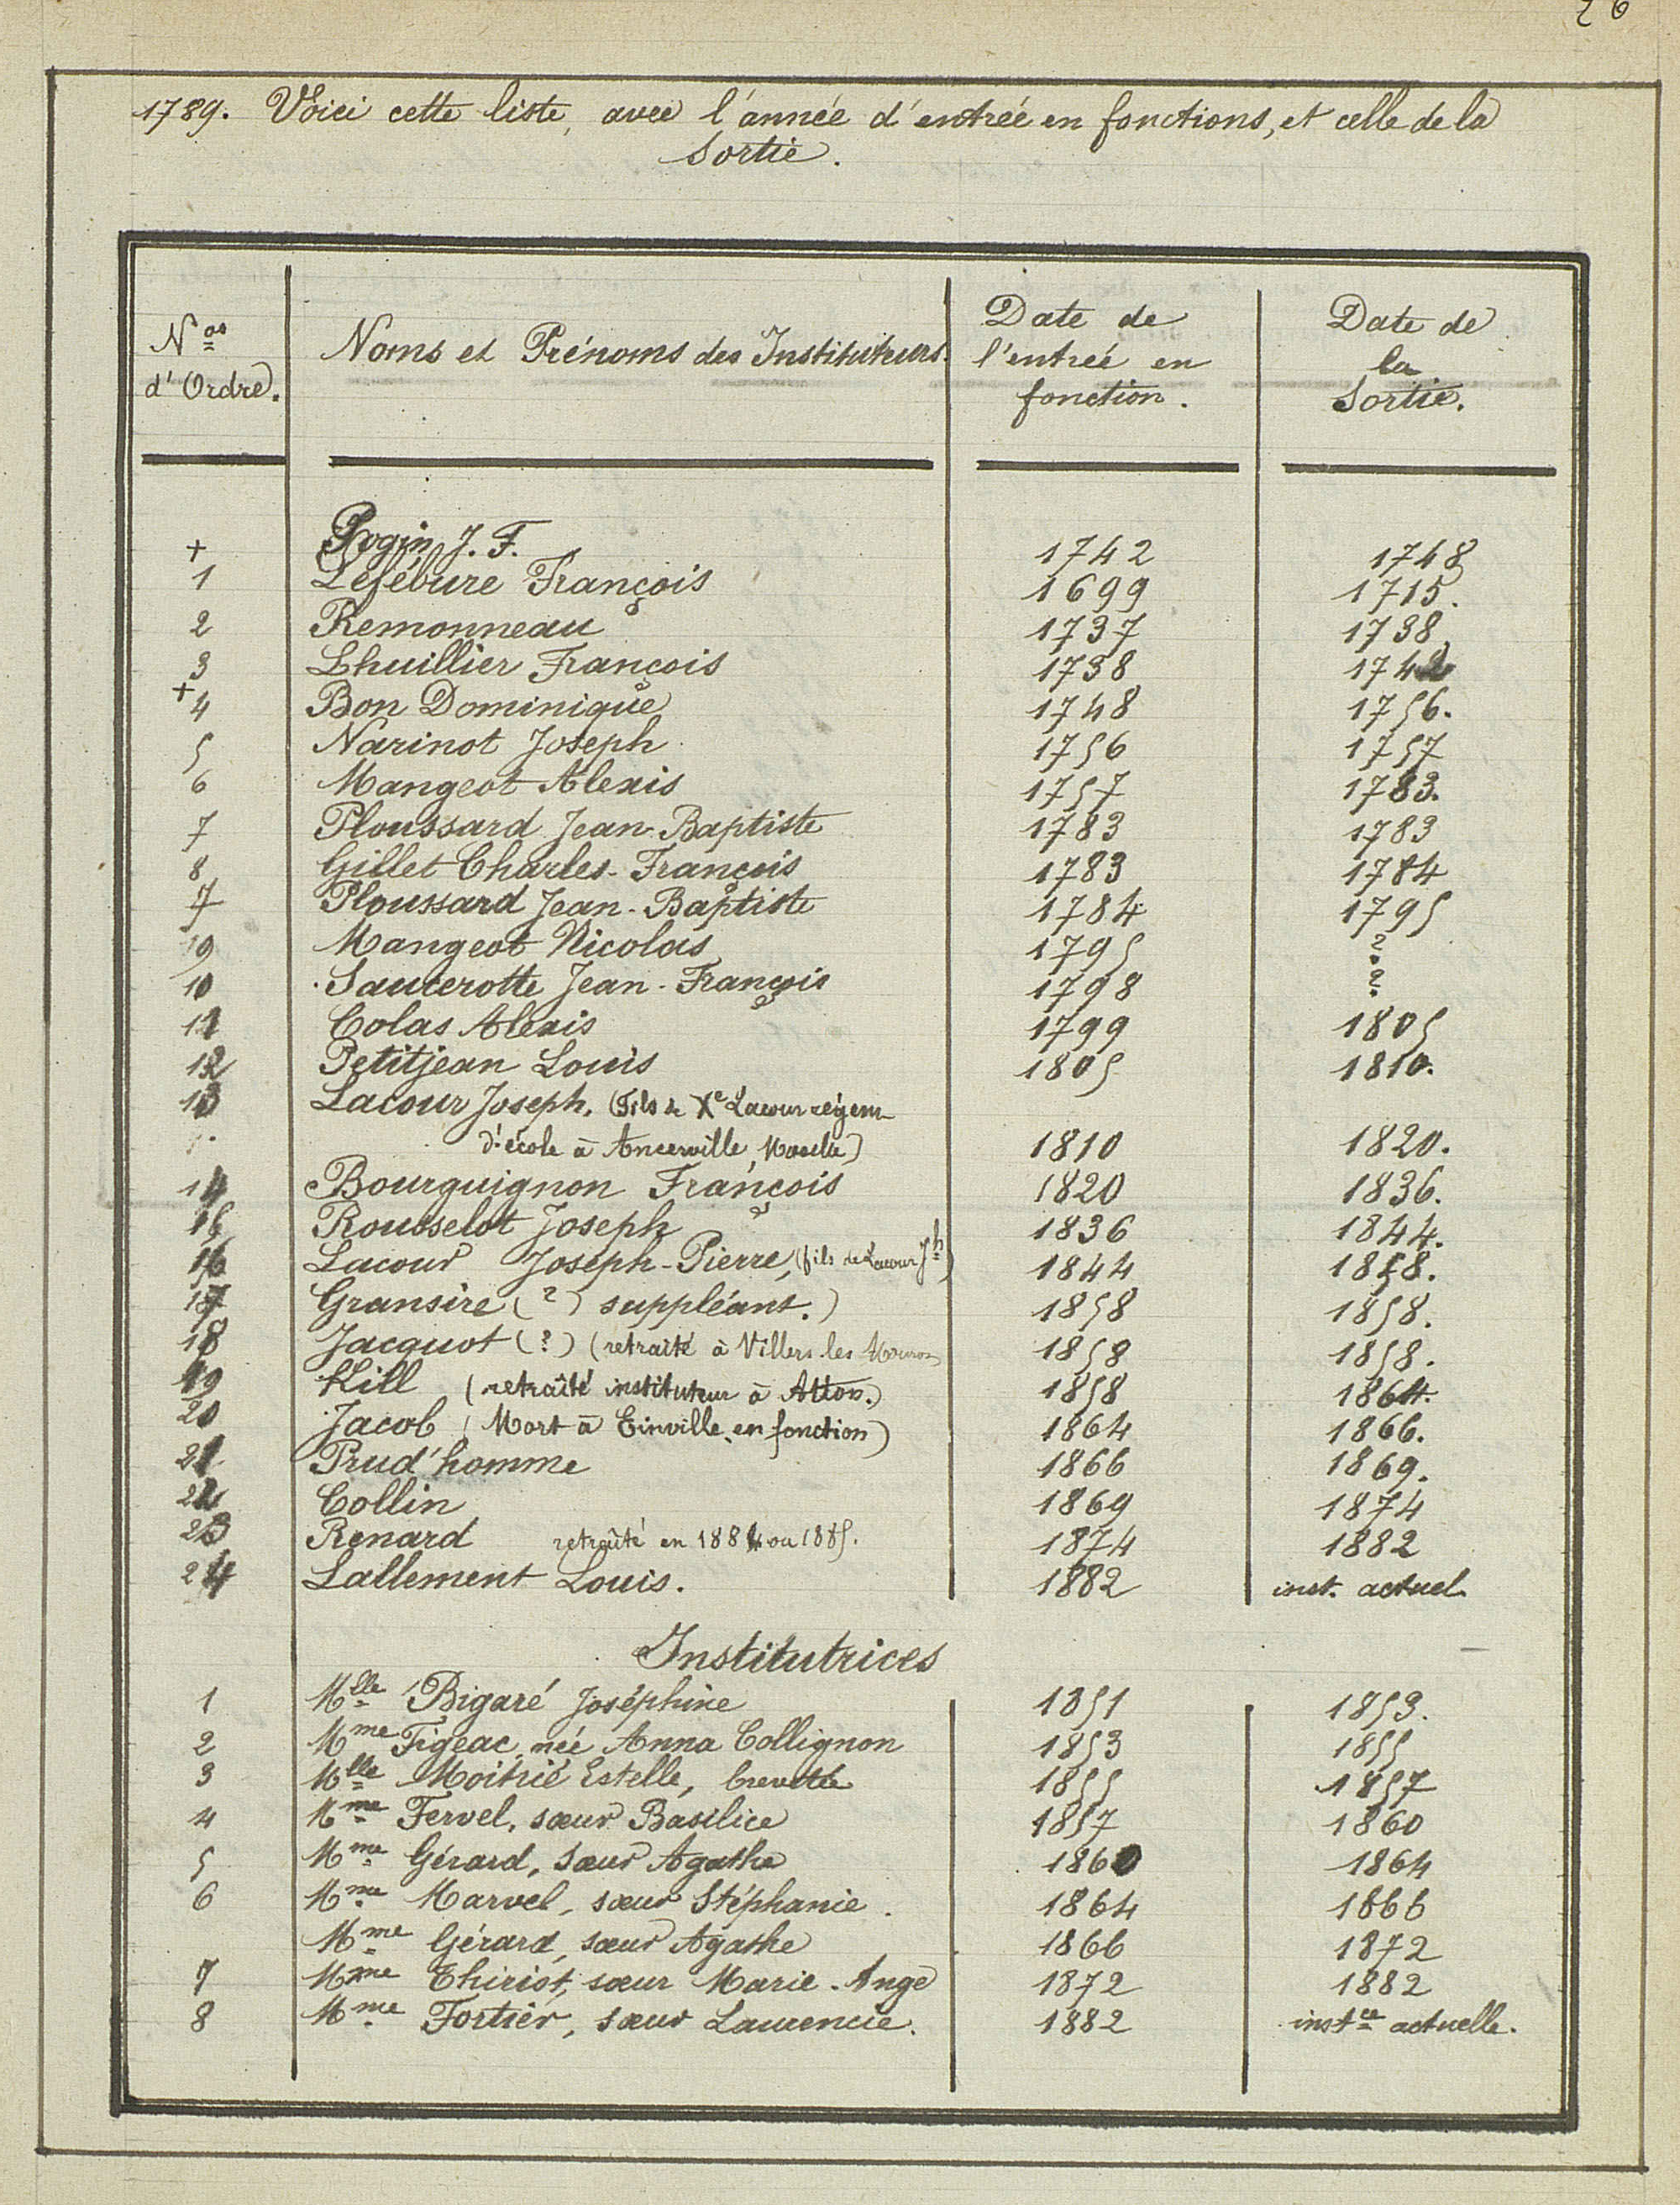 26
1789. Voici cette liste, avec l'année d'entrée en fonctions, et celle de la
Sortie.
Nos d'Ordre.
Noms et Prénoms des Instituteurs.
Date de l'entrée en fonction.
Date de la Sortie.
+ Rogin J. F. 1742 1748
1 Lefébure François 1699 1715.
2 Remonneau 1737 1738
3 Lhuillier François 1738 1742
+4 Bon Dominique 1748 1756.
5 Narinot Joseph 1756 1757
6 Mangeot Alexis 1757 1783.
7 Ploussard Jean-Baptiste 1783 1783
8 Gillet Charles-François 1783 1784
7 Ploussard Jean-Baptiste 1784 1795
9 Mangeot Nicolas 1795 ?
10 Sauterotte Jean-François 1798 ?
11 Colas Alexis 1799 1805
12 Petitjean Louis 1805 1810.
13 Lacour Joseph. (Fils de Xe Lacour régent
d'école à Ancerville, Moselle) 1810 1820.
14 Bourguignon François 1820 1836.
15 Rousselot Joseph 1836 1844.
16 Lacour Joseph-Pierre, (fils de Lacour Jh) 1844 1858.
17 Gransire (?) suppléant.) 1858 1858.
18 Jacquot (?) (retraité à Villers les 1858 1858.
19 Hill (retraîté instituteur à Atton.) 1858 1864.
20 Jacob (Mort à Einville, en fonction) 1864 1866.
21 Prud'homme 1866 1869.
22 Collin 1869 1874
23 Renard retraîté en 1884 ou 1885. 1874 1882
24 Lallement Louis. 1882 inst. actuel
Institutrices
1 Mlle Bigaré Joséphine 1851 1853.
2 Mme Figeac née Anna Collignon 1853 1855
3 Mlle Moitrié Estelle, brevetée 1855 1857
4 Mme Fervel, sœur Basilice 1857 1860
5 Mme Gérard, Sœur Agathe 1860 1864
6 Mme Marvel, sœur Stéphanie. 1864 1866
Mme Gérard, sœur Agathe 1866 1872
7 Mme Thiriot, sœur Marie-Ange 1872 1882
8 Mme Fortier, sœur Laurencie. 1882 instce actuelle.